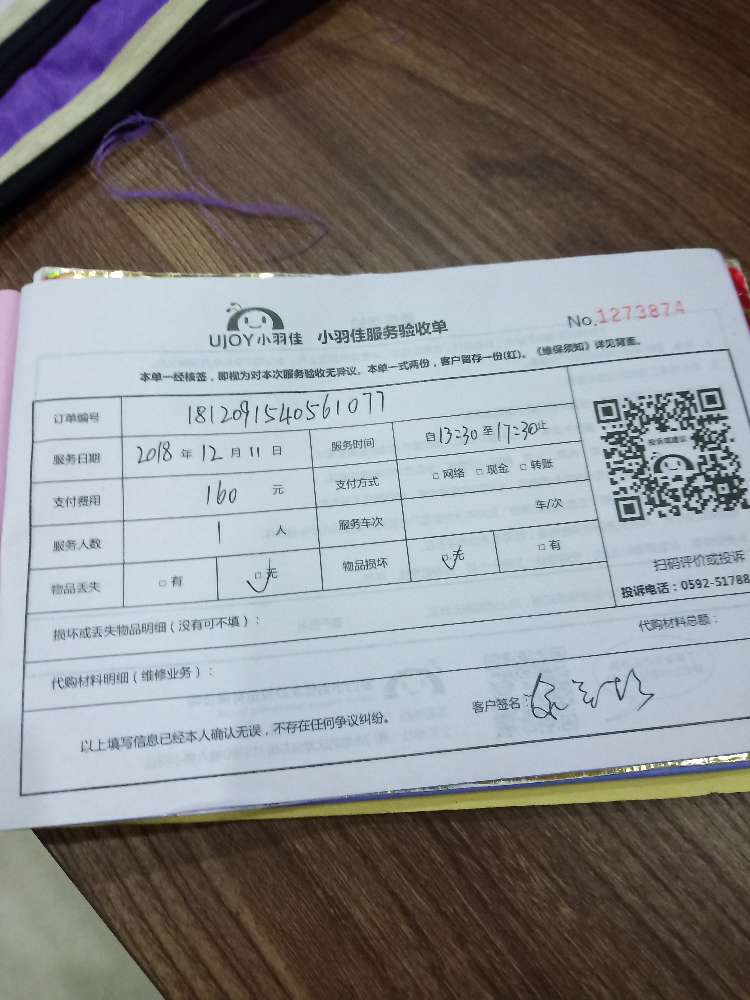 UJOY小羽佳 小羽佳服务验收单 No.1273874
本单一经核签，即视为对本次服务验收无异议。本单一式两份，客户留存一份(红)。《维保须知》详见背面。
订单编号 1812091540561077
服务日期 2018 年 12 月 11 日 服务时间 自 13:30 至 17:30 止
支付费用 160 元 支付方式 □ 网络 □ 现金 □ 转账
服务人数 1 人 服务车次 车/次
物品丢失 □ 有 □ 无 物品损坏 □ 无 □ 有
投诉或建议
扫码评价或投诉
投诉电话：0592-51788
损坏或丢失物品明细（没有可不填）：
代购材料明细（维修业务）： 代购材料总额：
以上填写信息已经本人确认无误，不存在任何争议纠纷。 客户签名：